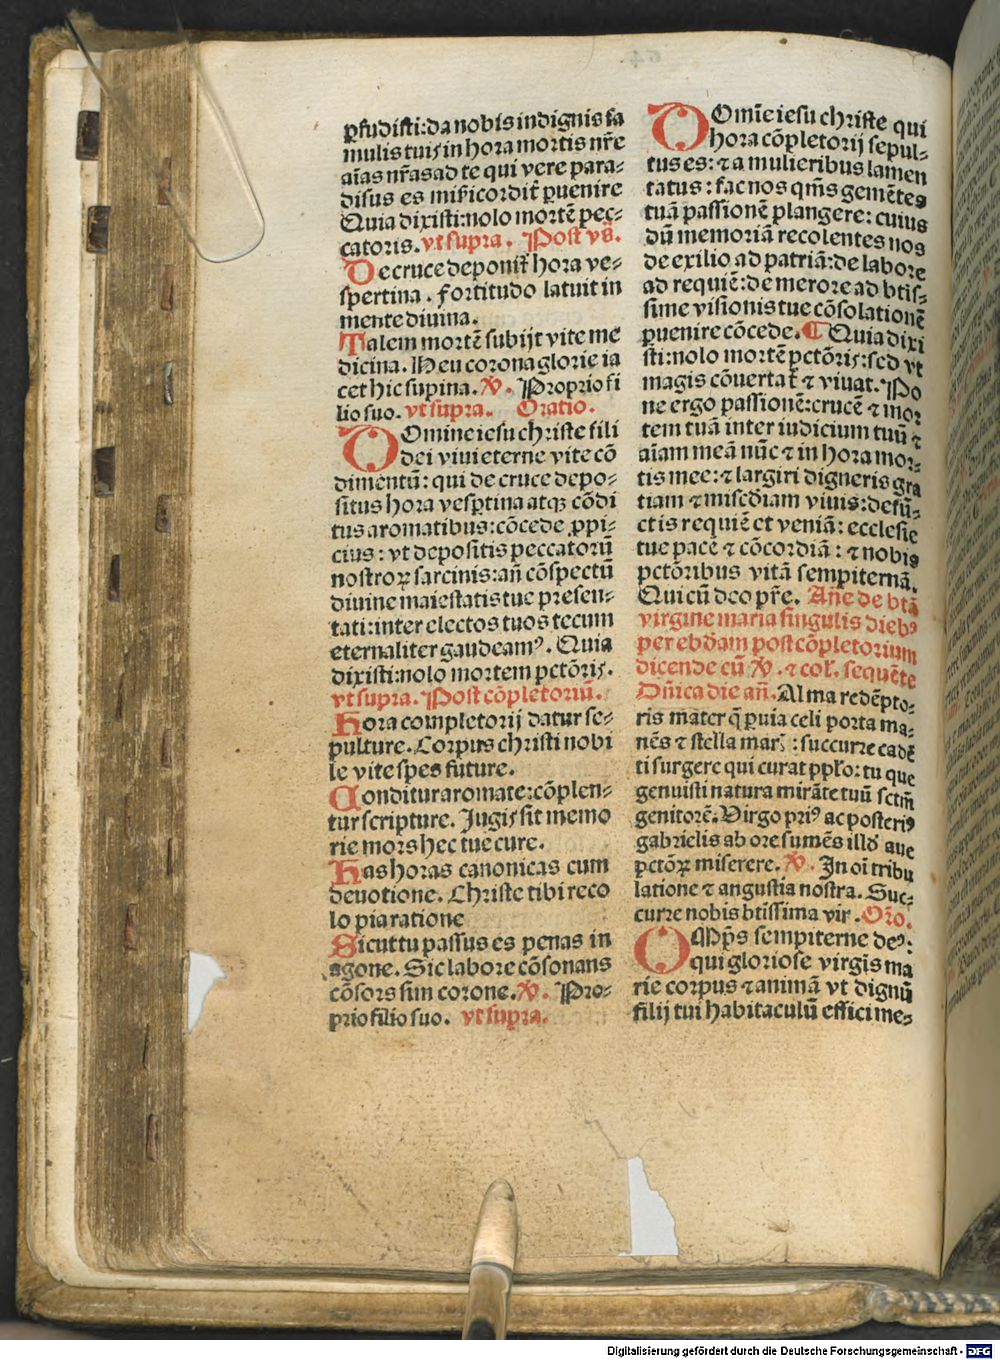 ꝓfudisti:da nobis indignis fa
mulis tuis in hora mortis nr̄e
aīas nr̄as ad te qui vere para-
disus es miẜicordit̄ ꝑuenire
Quia dixisti:nolo mortē pec-
catoris. vt supra. Post vs̄.
De cruce deponit̄ hora ve-
spertina. fortitudo latuit in
mente diuina.
Talem mortē subijt vite me
dicina. Heu corona glorie ia
cet hic supina. ℟. Proprio fi
lio suo. vt supra. Oratio.
DOmine iesu christe fili
dei viui eterne vite cō
dimentū: qui de cruce depo-
situs hora vesꝑtina atqꝫ cōdi
tus aromatibus:cōcede ꝓpi-
cius: vt depositis peccatorū
nostroꝝ sarcinis:añ cōspectū
diuine maiestatis tue presen-
tati:inter electos tuos tecum
eternaliter gaudeamꝰ. Quia
dixisti:nolo mortem pctōris.
vt supra. Post cōpletoriū.
Hora completorij datur se-
pulture. Corpus christi nobi
le vite spes future.
Conditur aromate:cōplen-
tur scripture. Jugis sit memo
rie mors hec tue cure.
Has horas canonicas cum
deuotione. Christe tibi reco
lo pia ratione
Sicut tu passus es penas in
agone. Sic labore cōsonans
cōsors sim corone. ℟. Pro-
prio filio suo. vt supra.
DOmīe iesu christe qui
hora cōpletorij sepul-
tus es: ⁊ a mulieribus lamen
tatus: fac nos qm̄s gemētes
tuā passionē plangere: cuius
dū memoriā recolentes nos
de exilio ad patriā:de labore
ad requiē:de merore ad btīs-
sime visionis tue cōsolationē
ꝑuenire cōcede. ¶ Quia dixi
sti:nolo mortē pctōris:sed vt
magis cōuertat̄ ⁊ viuat. Po
ne ergo passionē:crucē ⁊ mor
tem tuā inter iudicium tuū ⁊
aīam meā nūc ⁊ in hora mor-
tis mee: ⁊ largiri digneris gra
tiam ⁊ miscd̄iam viuis:defū-
ctis requiē et veniā: ecclesie
tue pacē ⁊ cōcordiā: ⁊ nobis
pctōribus vitā sempiternā.
Qui cū deo pr̄e. Añe de btā
virgine maria singulis diebꝰ
per ebd̄am post cōpletorium
dicende cū ℣. ⁊ col̄. sequēte
Dn̄ica die añ. Alma redēpto-
ris mater q̄ ꝑuia celi porta ma-
nēs ⁊ stella maris: succurre cadē
ti surgere qui curat ppl̄o: tu que
genuisti natura mirāte tuū sctm̄
genitorē. Virgo priꝰ ac posteriꝰ
gabrielis ab ore sumēs illd̄ aue
pctōꝝ miserere. ℣. In oī tribu
latione ⁊ angustia nostra. Suc-
curre nobis btīssima vir. Or̄o.
OMp̄s sempiterne deꝰ:
qui gloriose virgīs ma
rie corpus ⁊ animā vt dignū
filij tui habitaculū effici me-
Digitalisierung gefördert durch die Deutsche Forschungsgemeinschaft - DFG